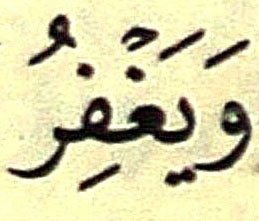 وَيَغْفِرُ